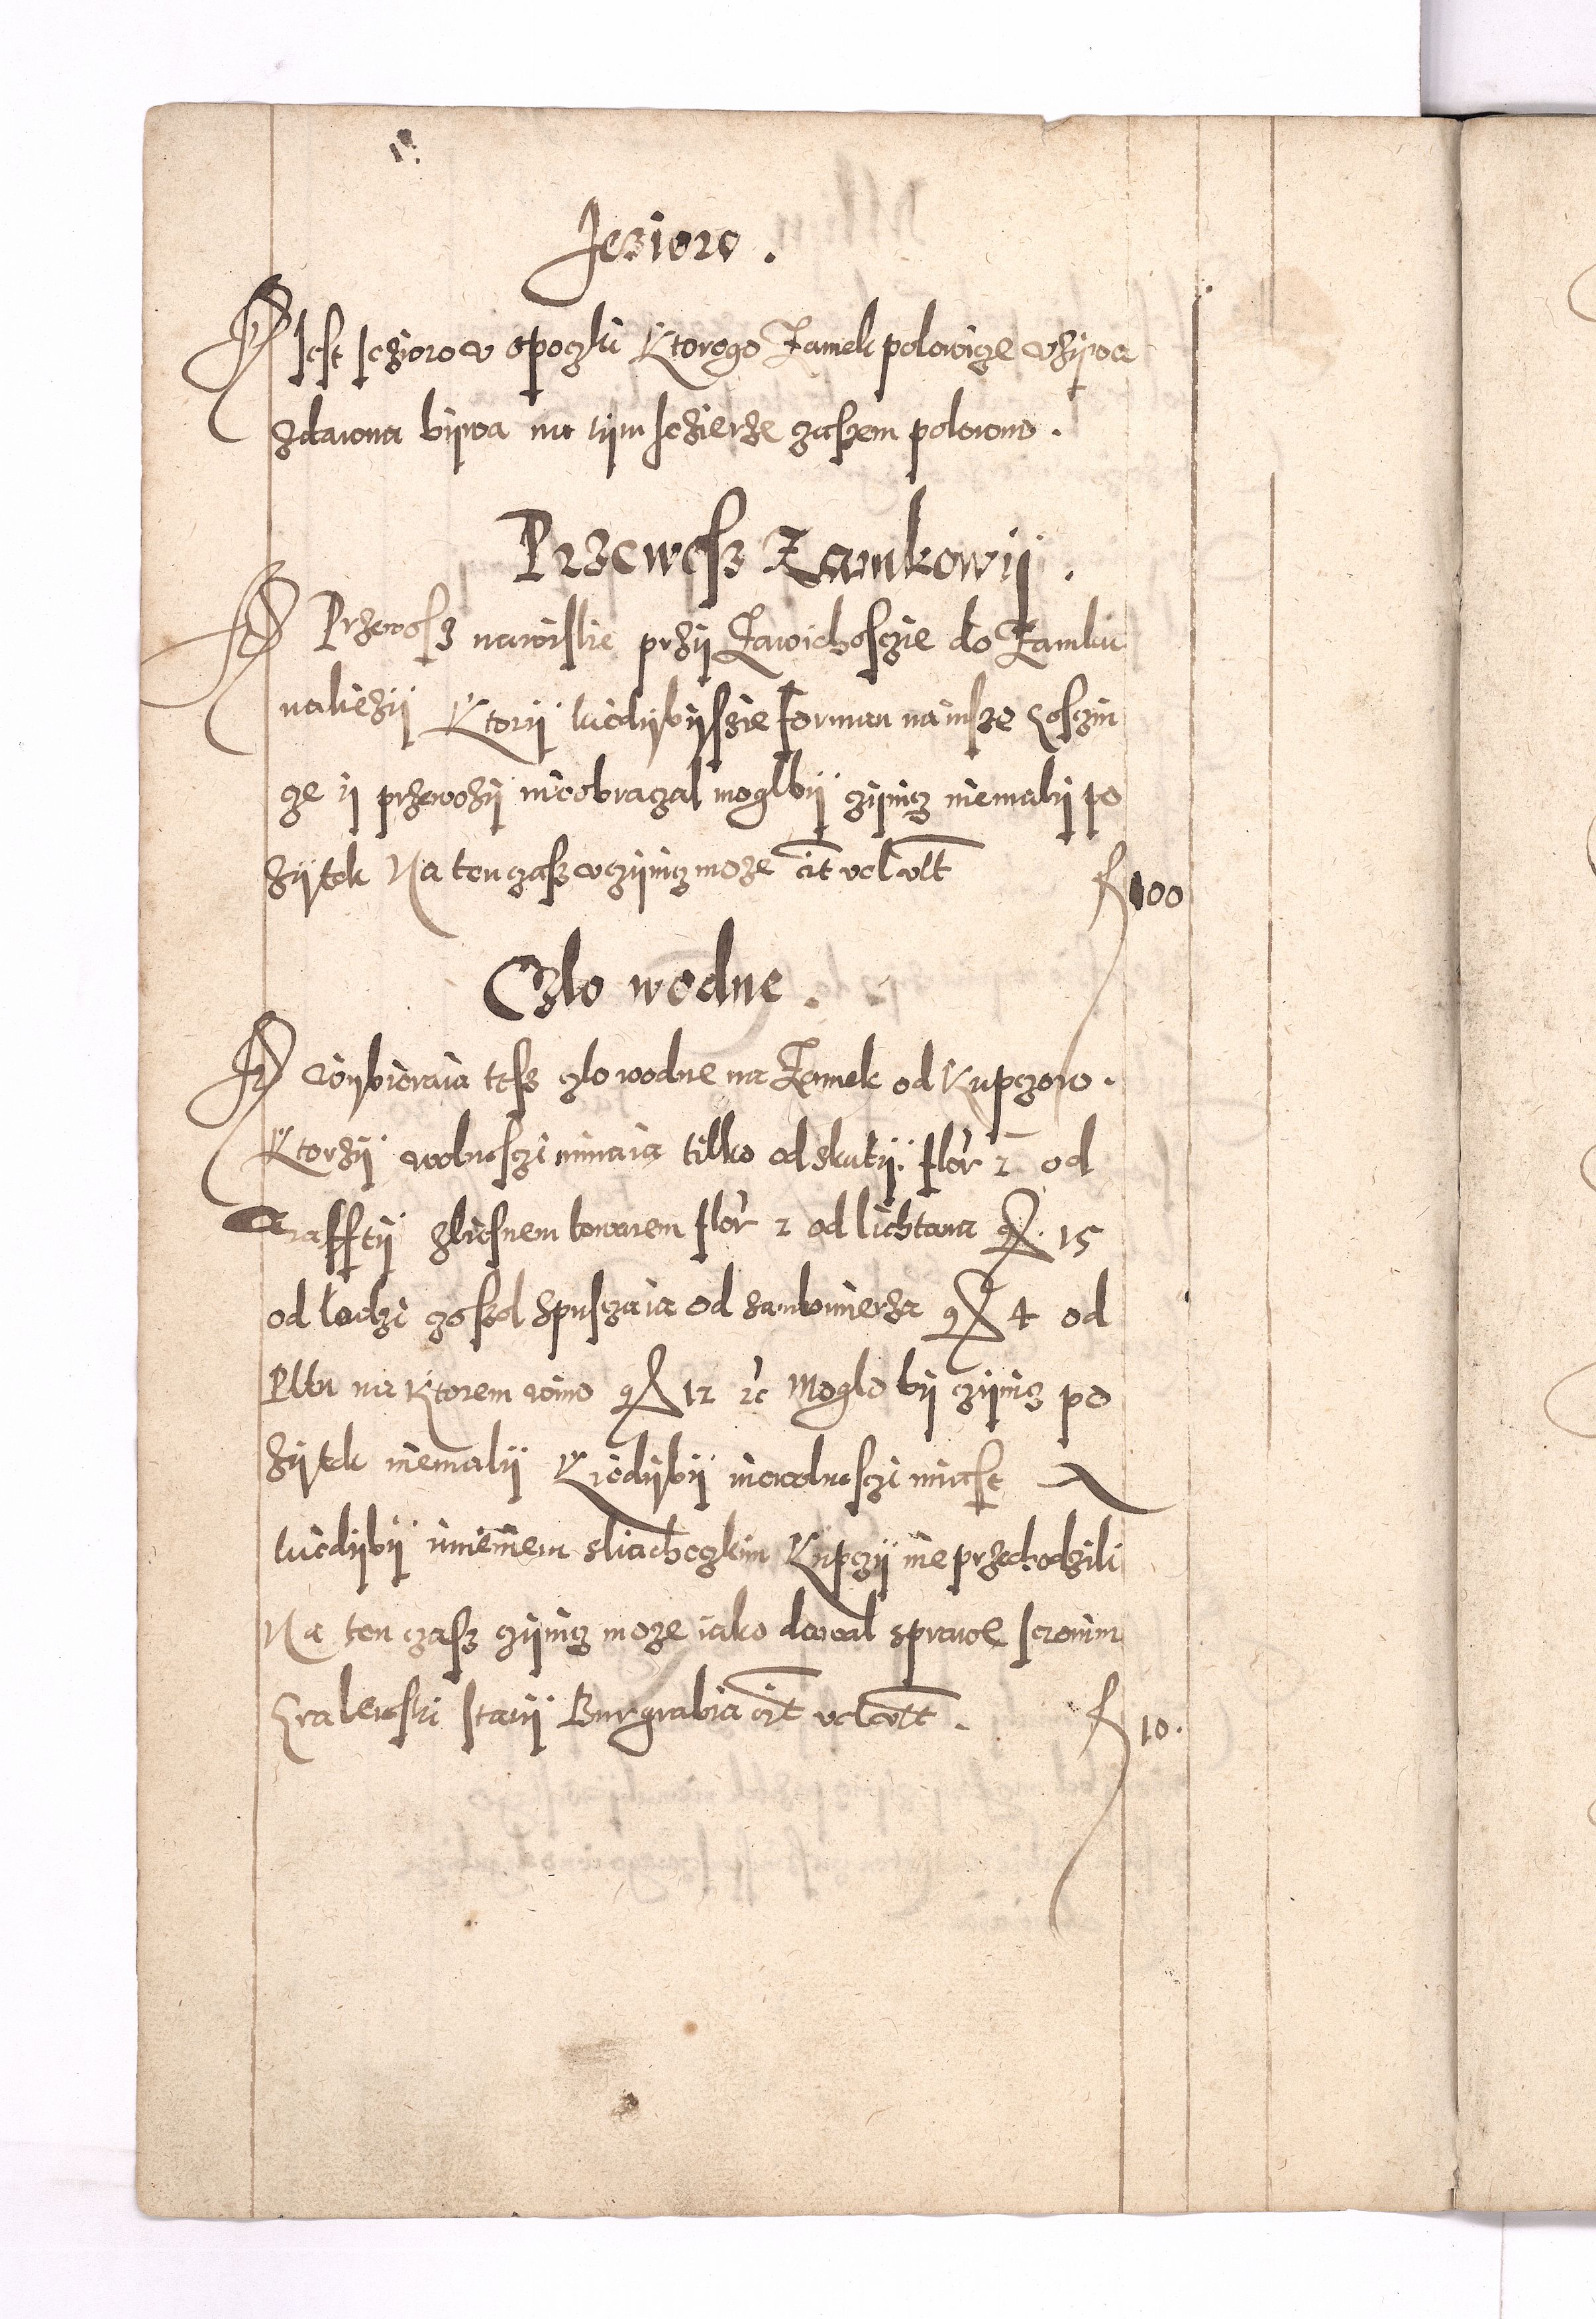 Jezioro .
Jest Jezioro v opoczki Ktorego Zamek polowicze vżijwa
zdawna bijwa na tijm Jezierze czasem polowono .
Przewosz Zamkowij .
Przewosz nawislie przij Zawichoscie do Zamku
nalieżij Ktorij kiedijbij sie forman na insze gosczin
cze ij przewozij nieobraczal moglbij czijnicz niemalij po
żijtek Na ten czasz vczijnicz moze cit vel vlt f 100
Czlo wodne .
Wijbieraia tesz czlo wodne na Zamek od Kupczow .
Ktorzij wolnosczi nimaia tilko od skutij flor 2 od
trafftij zliesnem towarem flor 2 od lichtana g 15
od lodzi czo sol spusczaia od sandomierza g 4 od
Plltu na Ktorem wino g 12 etc Moglo bij czijnicz po
żijtek niemalij Kiedijbij niewolnosczi miast
kiedijbij imieniem sliacheczkim Kupczij nie przechodzili
Na ten czasz czijnicz moze iako dawal sprawe Jeronim
starij Burgrabia cit vel vlt . f 10.